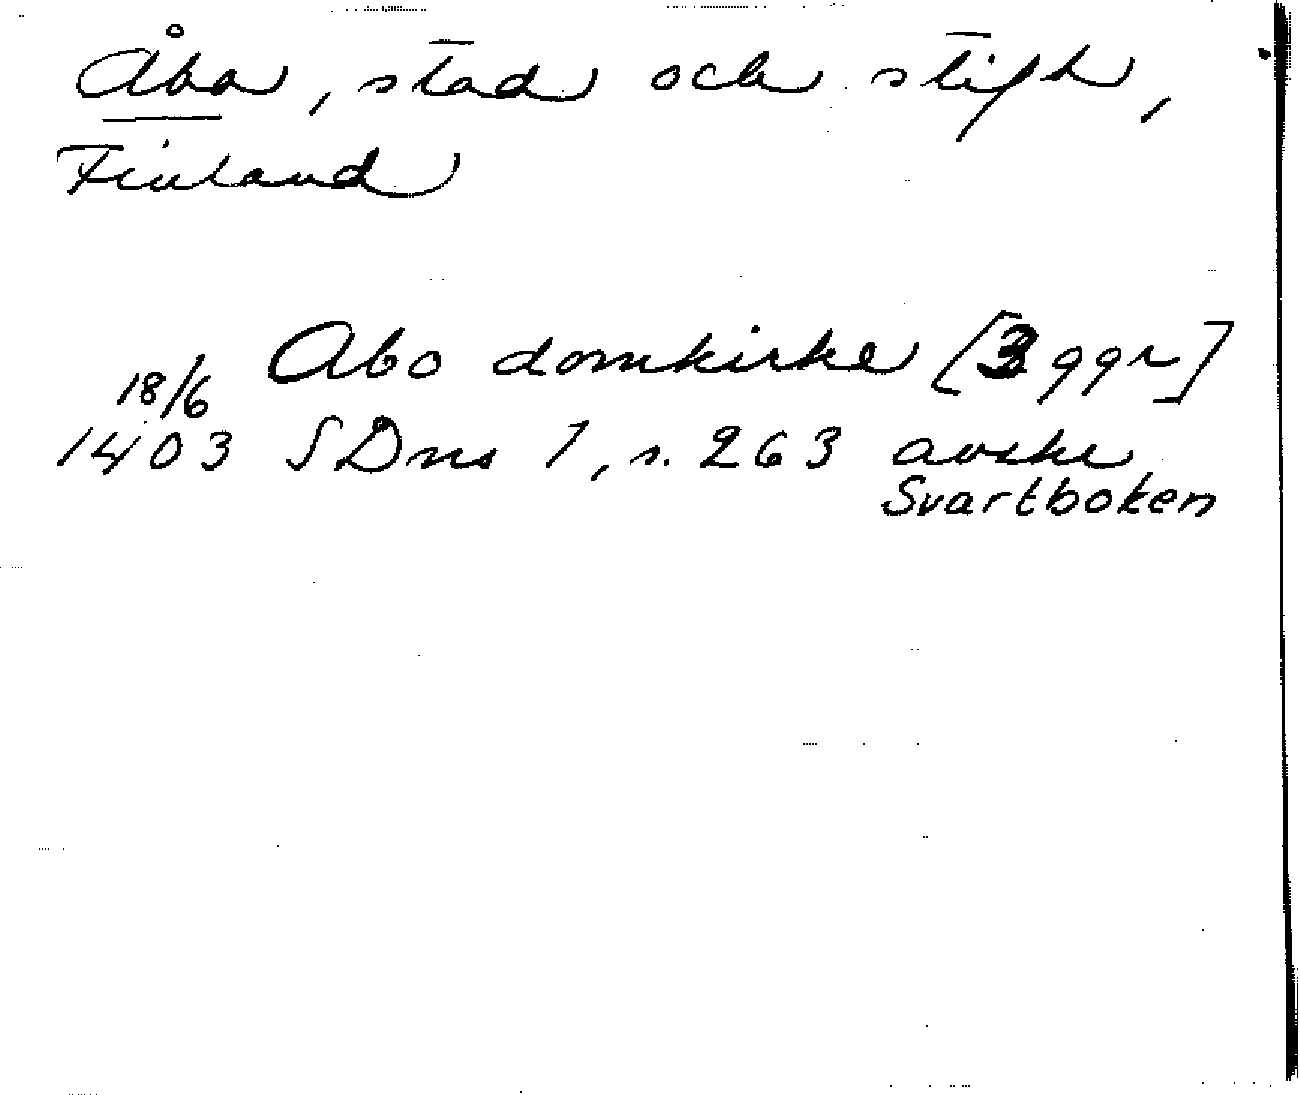 Åbo, stad och stift,
Finland
Abo domkirke [3 ggr]
18/6
1403 SDns 1, s. 263 avskr
Svartboken